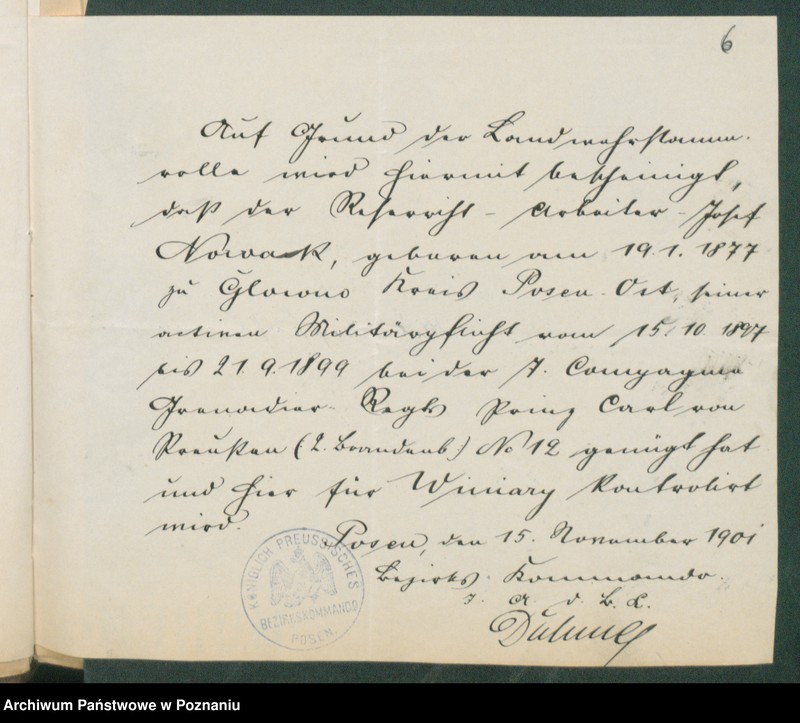 6
Auf Grund der Landwehrstamm-
rolle wird hiermit bescheinigt,
daß der Reservist - Arbeiter - Josef
Nowak, geboren am 19.1.1877
zu Glowno Kreis Posen-Ost, seiner
activen Militärpflicht vom 15.10.1897
bis 21.9.1899 bei der 7. Compagnie
Grenadier-Regts Prinz Carl von
Preußen (2. Brandenb.) No 12 genügt hat
und hier für Winiary kontrolirt
wird.
Posen, den 15. November 1901
Bezirks-Kommando.
I. A. d. B. K.
KÖNIGLICH PREUSSISCHES
BEZIRKSKOMMANDO
POSEN.
Archiwum Państwowe w Poznaniu